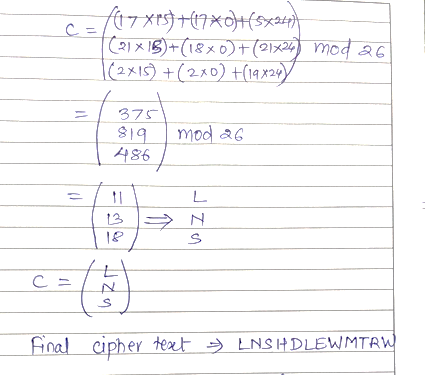 C = ((17×15)+(17×0)+(5×24)
(21×15)+(18×0)+(21×24)
(2×15)+(2×0)+(19×24)) mod 26
= (375
819
486) mod 26
= (11
13
18) ⇒ L
N
S
C = (L
N
S)
Final cipher text → LNSHDLEWMTRW